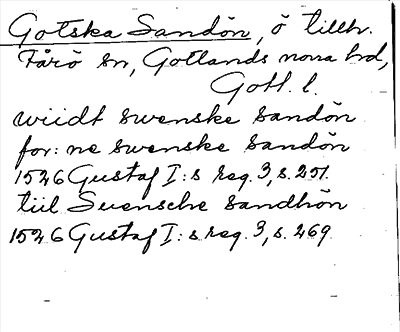 Gotska Sandön, ö tillh.
Fårö sn, Gotlands norra hd,
Gotl. l.
wiidt swenske sandön
for: ne swenske sandön
1526 Gustaf I:s reg. 3, s. 251.
tiil Suensche sandhön
1526 Gustaf I:s reg. 3, s. 269